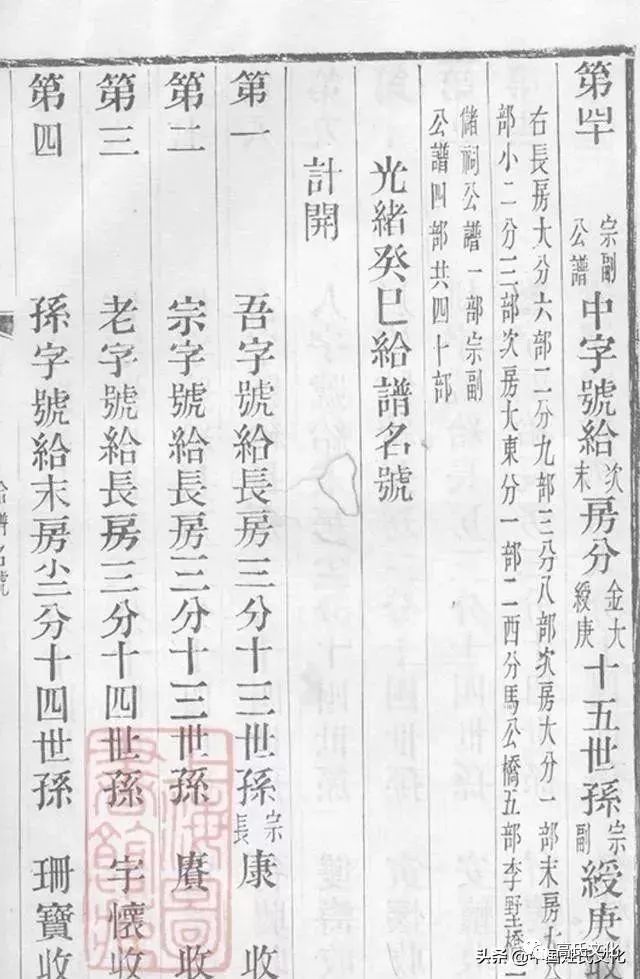 第四十 宗副公譜 中字號給 次末 房分 金大綬庚 十五世孫 宗副 綬庚收
右長房大分六部二分九部三分八部次房大分一部末房大
部小二分三部次房大東分一部二西分馬公橋五部李墅橋
儲祠公譜一部宗副
公譜四部共四十部
光緒癸巳給譜名號
計開
第一 吾字號給長房三分十三世孫 宗長 康收
第二 宗字號給長房三分十三世孫 賡收
第三 老字號給長房三分十四世孫 宇懷收
第四 孫字號給末房小二分十四世孫 珊寶收
給譜名號
上海圖書館藏
頭條 @中國姓氏文化